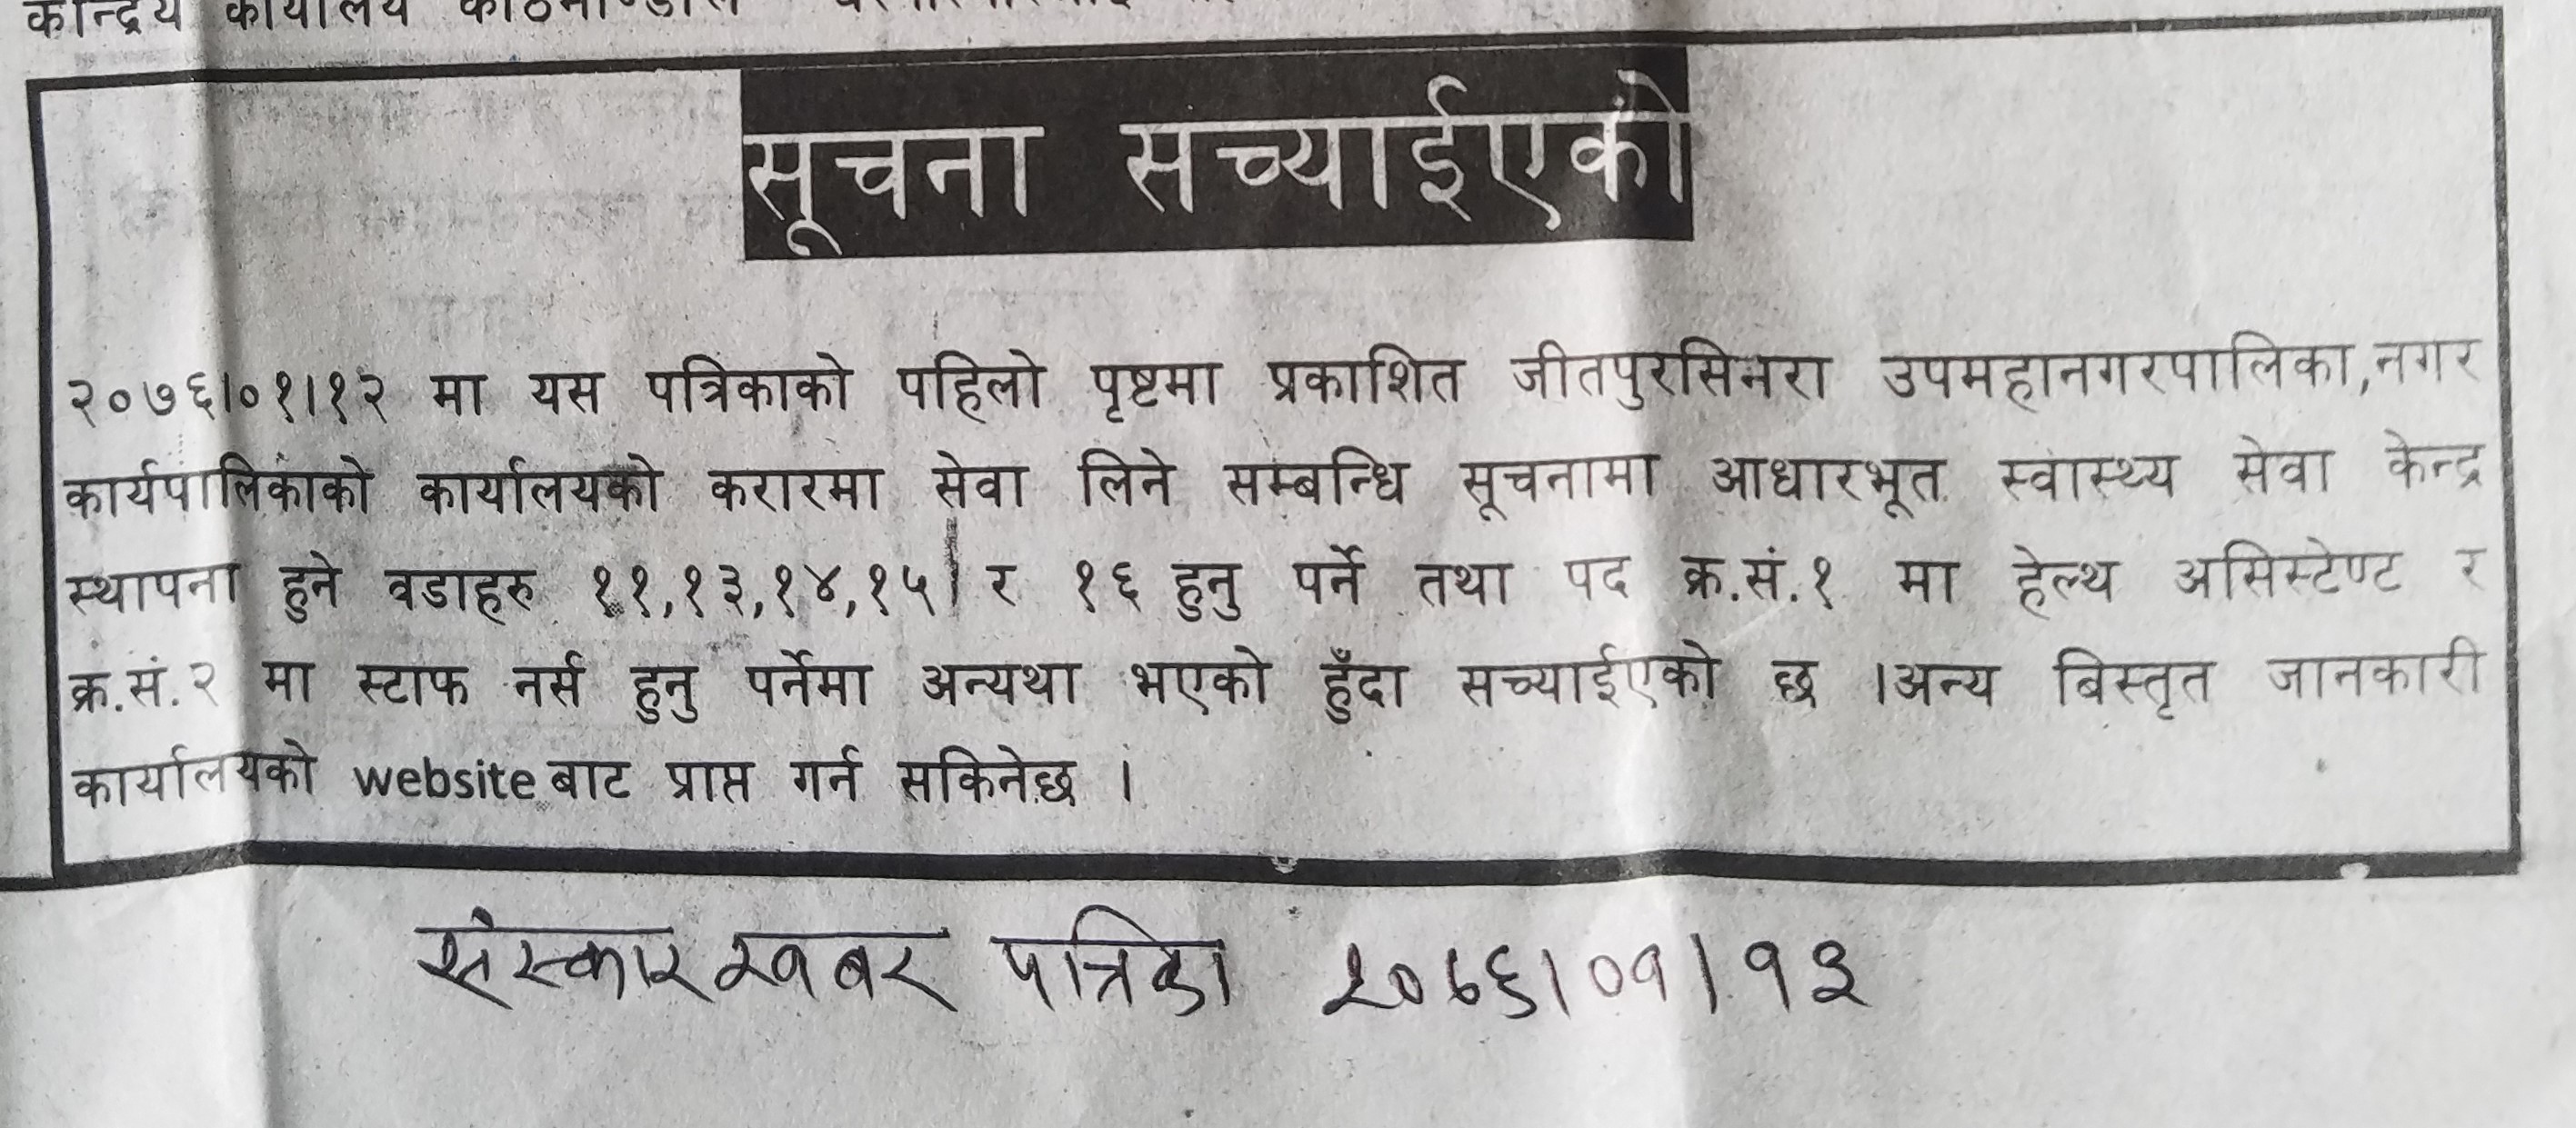 कार्यालय
सूचना सच्याईएको
२०७६।०१।१२ मा यस पत्रिकाको पहिलो पृष्टमा प्रकाशित जीतपुरसिमरा उपमहानगरपालिका,नगर
कार्यपालिकाको कार्यालयको करारमा सेवा लिने सम्बन्धि सूचनामा आधारभूत स्वास्थ्य सेवा केन्द्र
स्थापना हुने वडाहरु ११,१३,१४,१५ र १६ हुनु पर्ने तथा पद क्र.सं.१ मा हेल्थ असिस्टेण्ट र
क्र.सं.२ मा स्टाफ नर्स हुनु पर्नेमा अन्यथा भएको हुँदा सच्याईएको छ ।अन्य बिस्तृत जानकारी
कार्यालयको website बाट प्राप्त गर्न सकिनेछ ।
संस्कार खबर पत्रिका २०७६।०१।१३